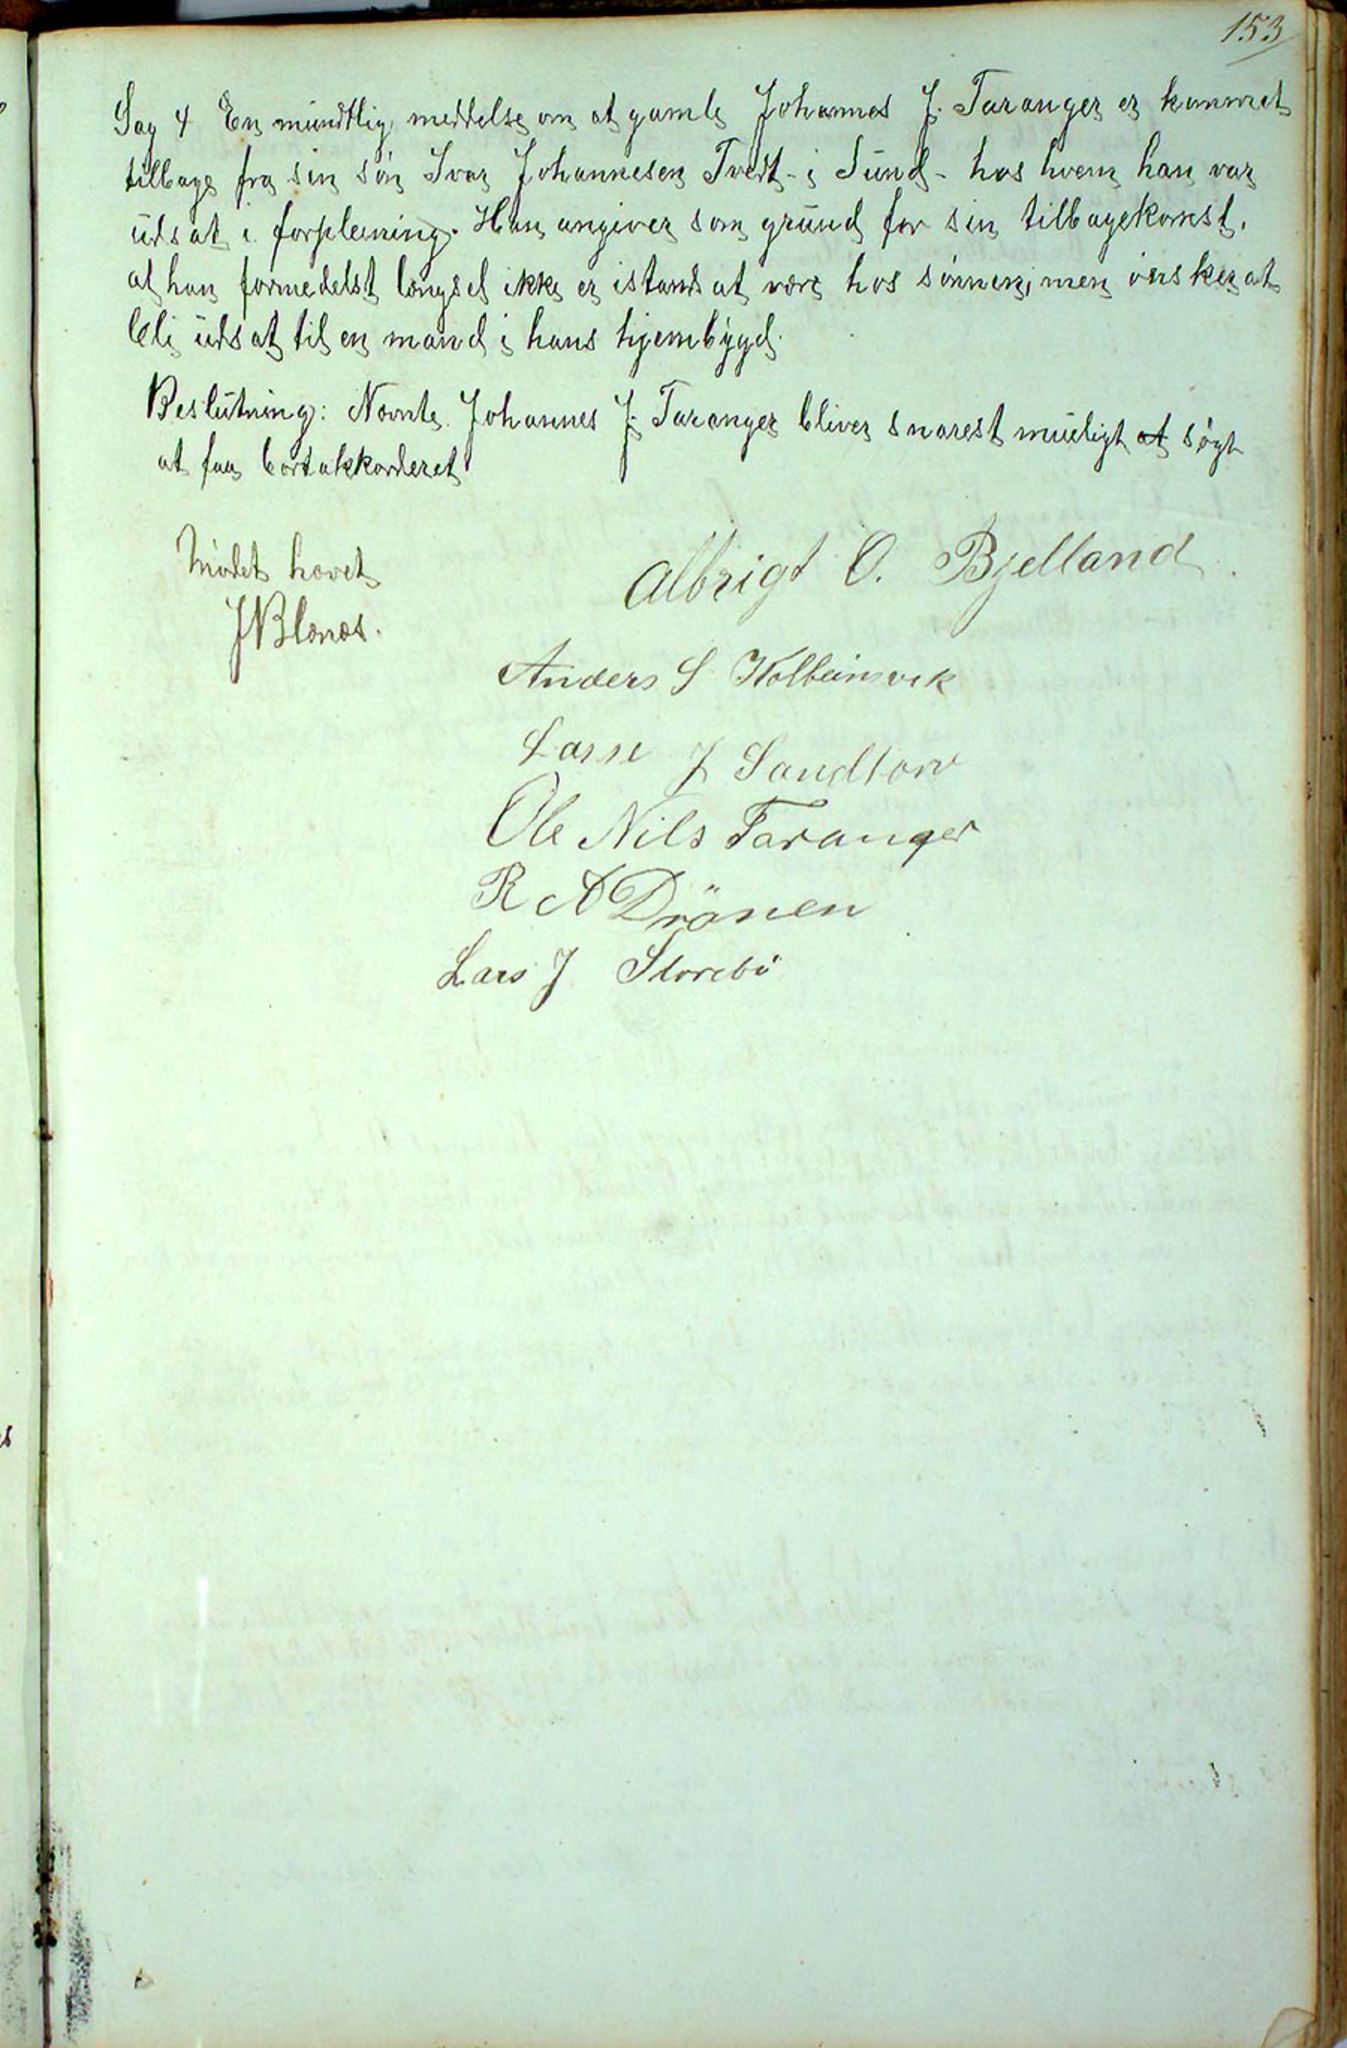 153
Sag 4 En mundtlig meddelse om at gamle Johannes J. Taranger er kommet
tilbage fra sin søn Ivar Johannesen Tvedt - i Sund - hos hvem han var
udsat i forpleining. Han angiver som grund for sin tilbagekomst,
at han formedelst længsel ikke er istand at være hos sønnen, men ønsker at
bli udsat til en mand i hans hjembygd.
Beslutning: Nævnte Johannes J. Taranger bliver snarest mueligt at søgt
at faa bortakkorderet
Mødet hævet
Albrigt O. Bjelland.
JBlænes.
Anders S Kolbeinsvik
Lasse J Sandtorv
Ole Nils Taranger
R A Drönen
Lars J Storebø